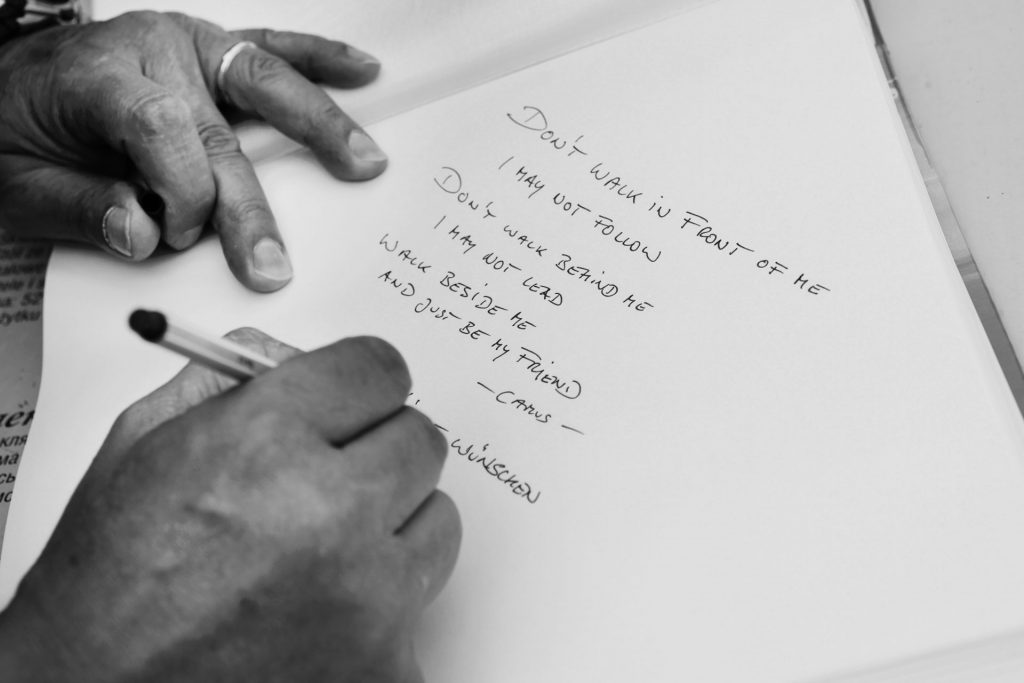 Don't walk in Front of me
I may not follow
Don't walk behind me
I may not lead
Walk beside me
and just be my Friend
— Camus —
wünschen